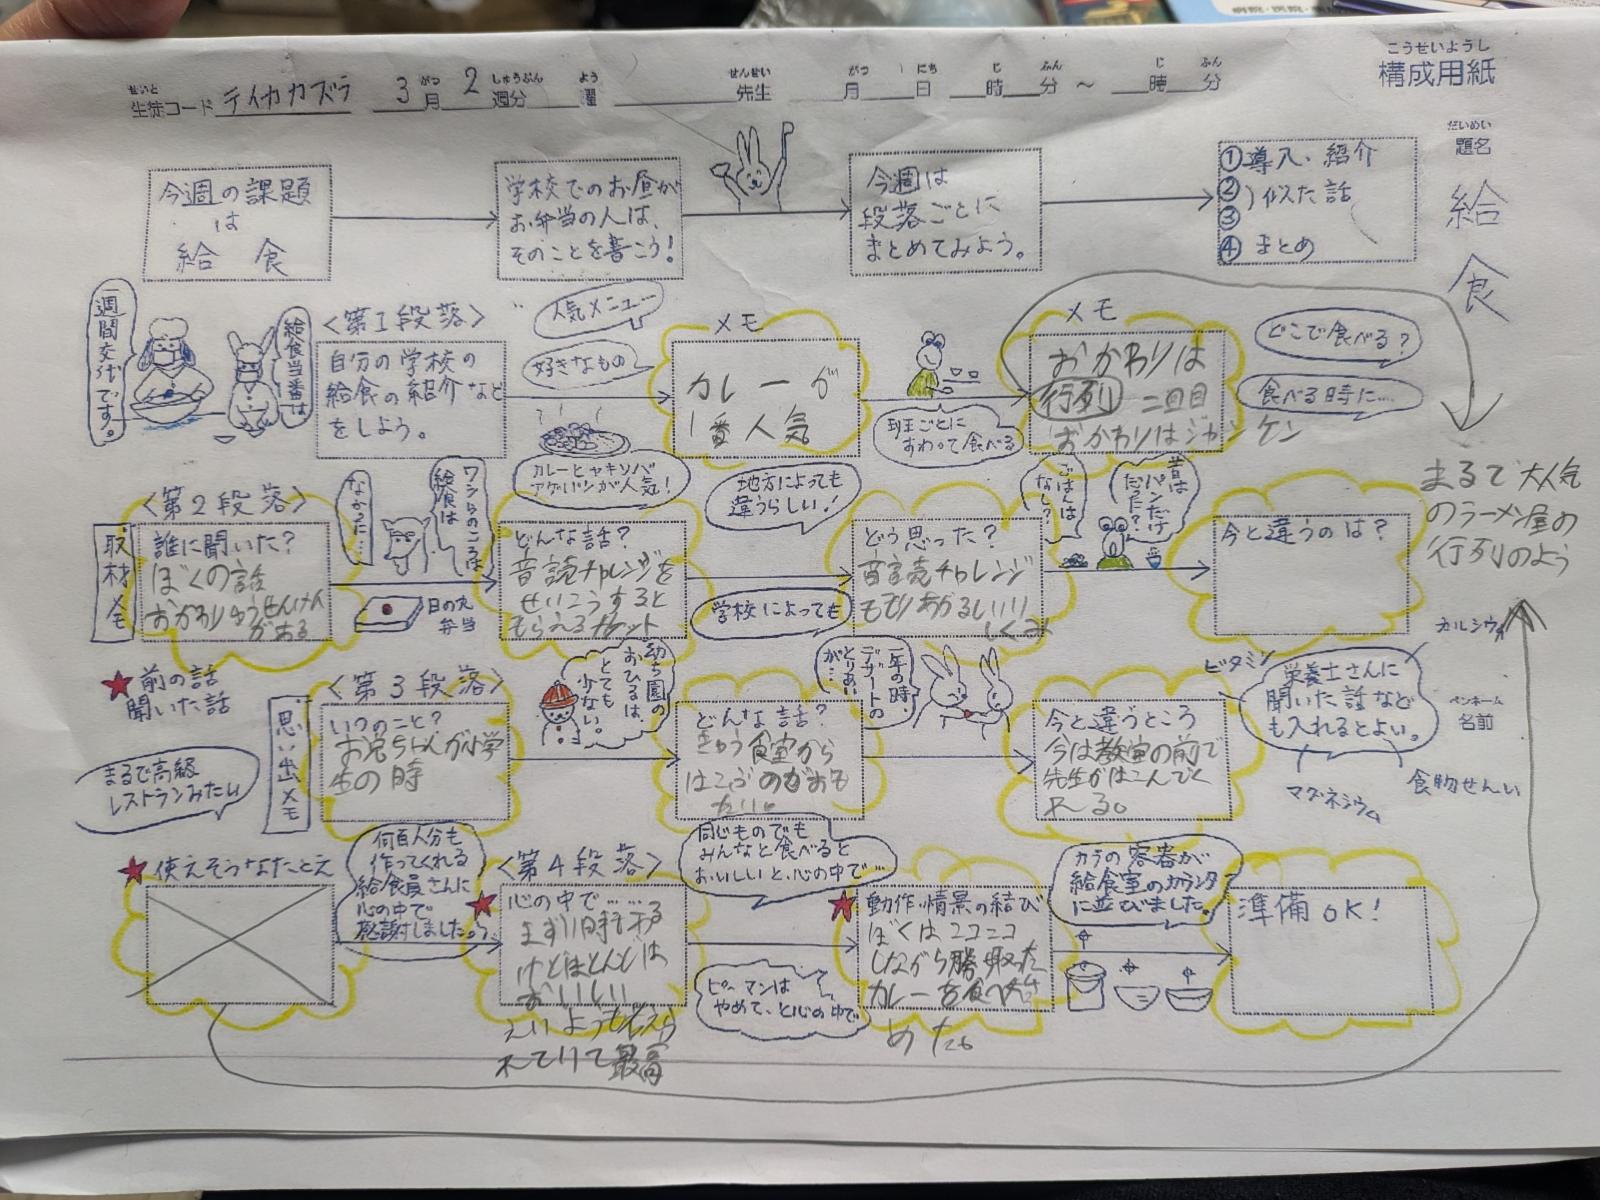 こうせいようし
構成用紙
せいと
生徒コード テイカカズラ
がつ しゅうぶん よう
3月 2週分 曜
せんせい
先生
がつ にち じ ふん じ ふん
月 日 時 分 ～ 時 分
だいめい
題名
給食
今週の課題
は
給 食
学校でのお昼が
お弁当の人は、
そのことを書こう!
今週は
段落ごとに
まとめてみよう。
①導入、紹介
②)似た話
③
④まとめ
一週間交代です。
給食当番は
〈第1段落〉
自分の学校の
給食の紹介など
をしよう。
人気メニュー
好きなもの
カレーとヤキソバ
アゲパンが人気!
メモ
カレーが
1番人気
班ごとに
すわって食べる
メモ
おかわりは
行列 二回目
おかわりはジャンケン
どこで食べる?
食べる時に…
まるで大人気
のラーメン屋の
行列のよう
〈第2段落〉
取材メモ
誰に聞いた?
ぼくの話
おかわりゆうせんけん
がある
ワシらのころは
給食は
なかった…
日の丸
弁当
どんな話?
音読チャレンジを
せいこうすると
もらえるチケット
地方によっても
違うらしい!
学校によっても
どう思った?
音読チャレンジ
もりあがるしいい
しくみ
ごはんは
なし?
昔は
パンだけ
だった?
今と違うのは?
★前の話
聞いた話
〈第3段落〉
思い出メモ
いつのこと?
お兄ちゃんが小学
生の時
幼ち園の
おひるは、
とても
少ない。
どんな話?
きゅう食室から
はこぶのがおも
たい。
一年の時
デザートの
とりあい
が…
今と違うところ
今は教室の前で
先生がはこんでく
れる。
栄養士さんに
聞いた話など
も入れるとよい。
カルシウム
ビタミン
マグネシウム
食物せんい
ペンネーム
名前
まるで高級
レストランみたい
★使えそうなたとえ
何百人分も
作ってくれる
給食員さんに
心の中で
感謝しました。
〈第4段落〉
★心の中で……
まずい時もある
けどほとんどは
おいしい
えいようも考えら
れていて最高
同じものでも
みんなと食べると
おいしいと、心の中で…
ピーマンは
やめて、と心の中で
★動作・情景の結び
ぼくはニコニコ
しながら勝ち取った
カレーを食べはじ
めた。
カラの容器が
給食室のカウンタ
に並びました。
準備OK!